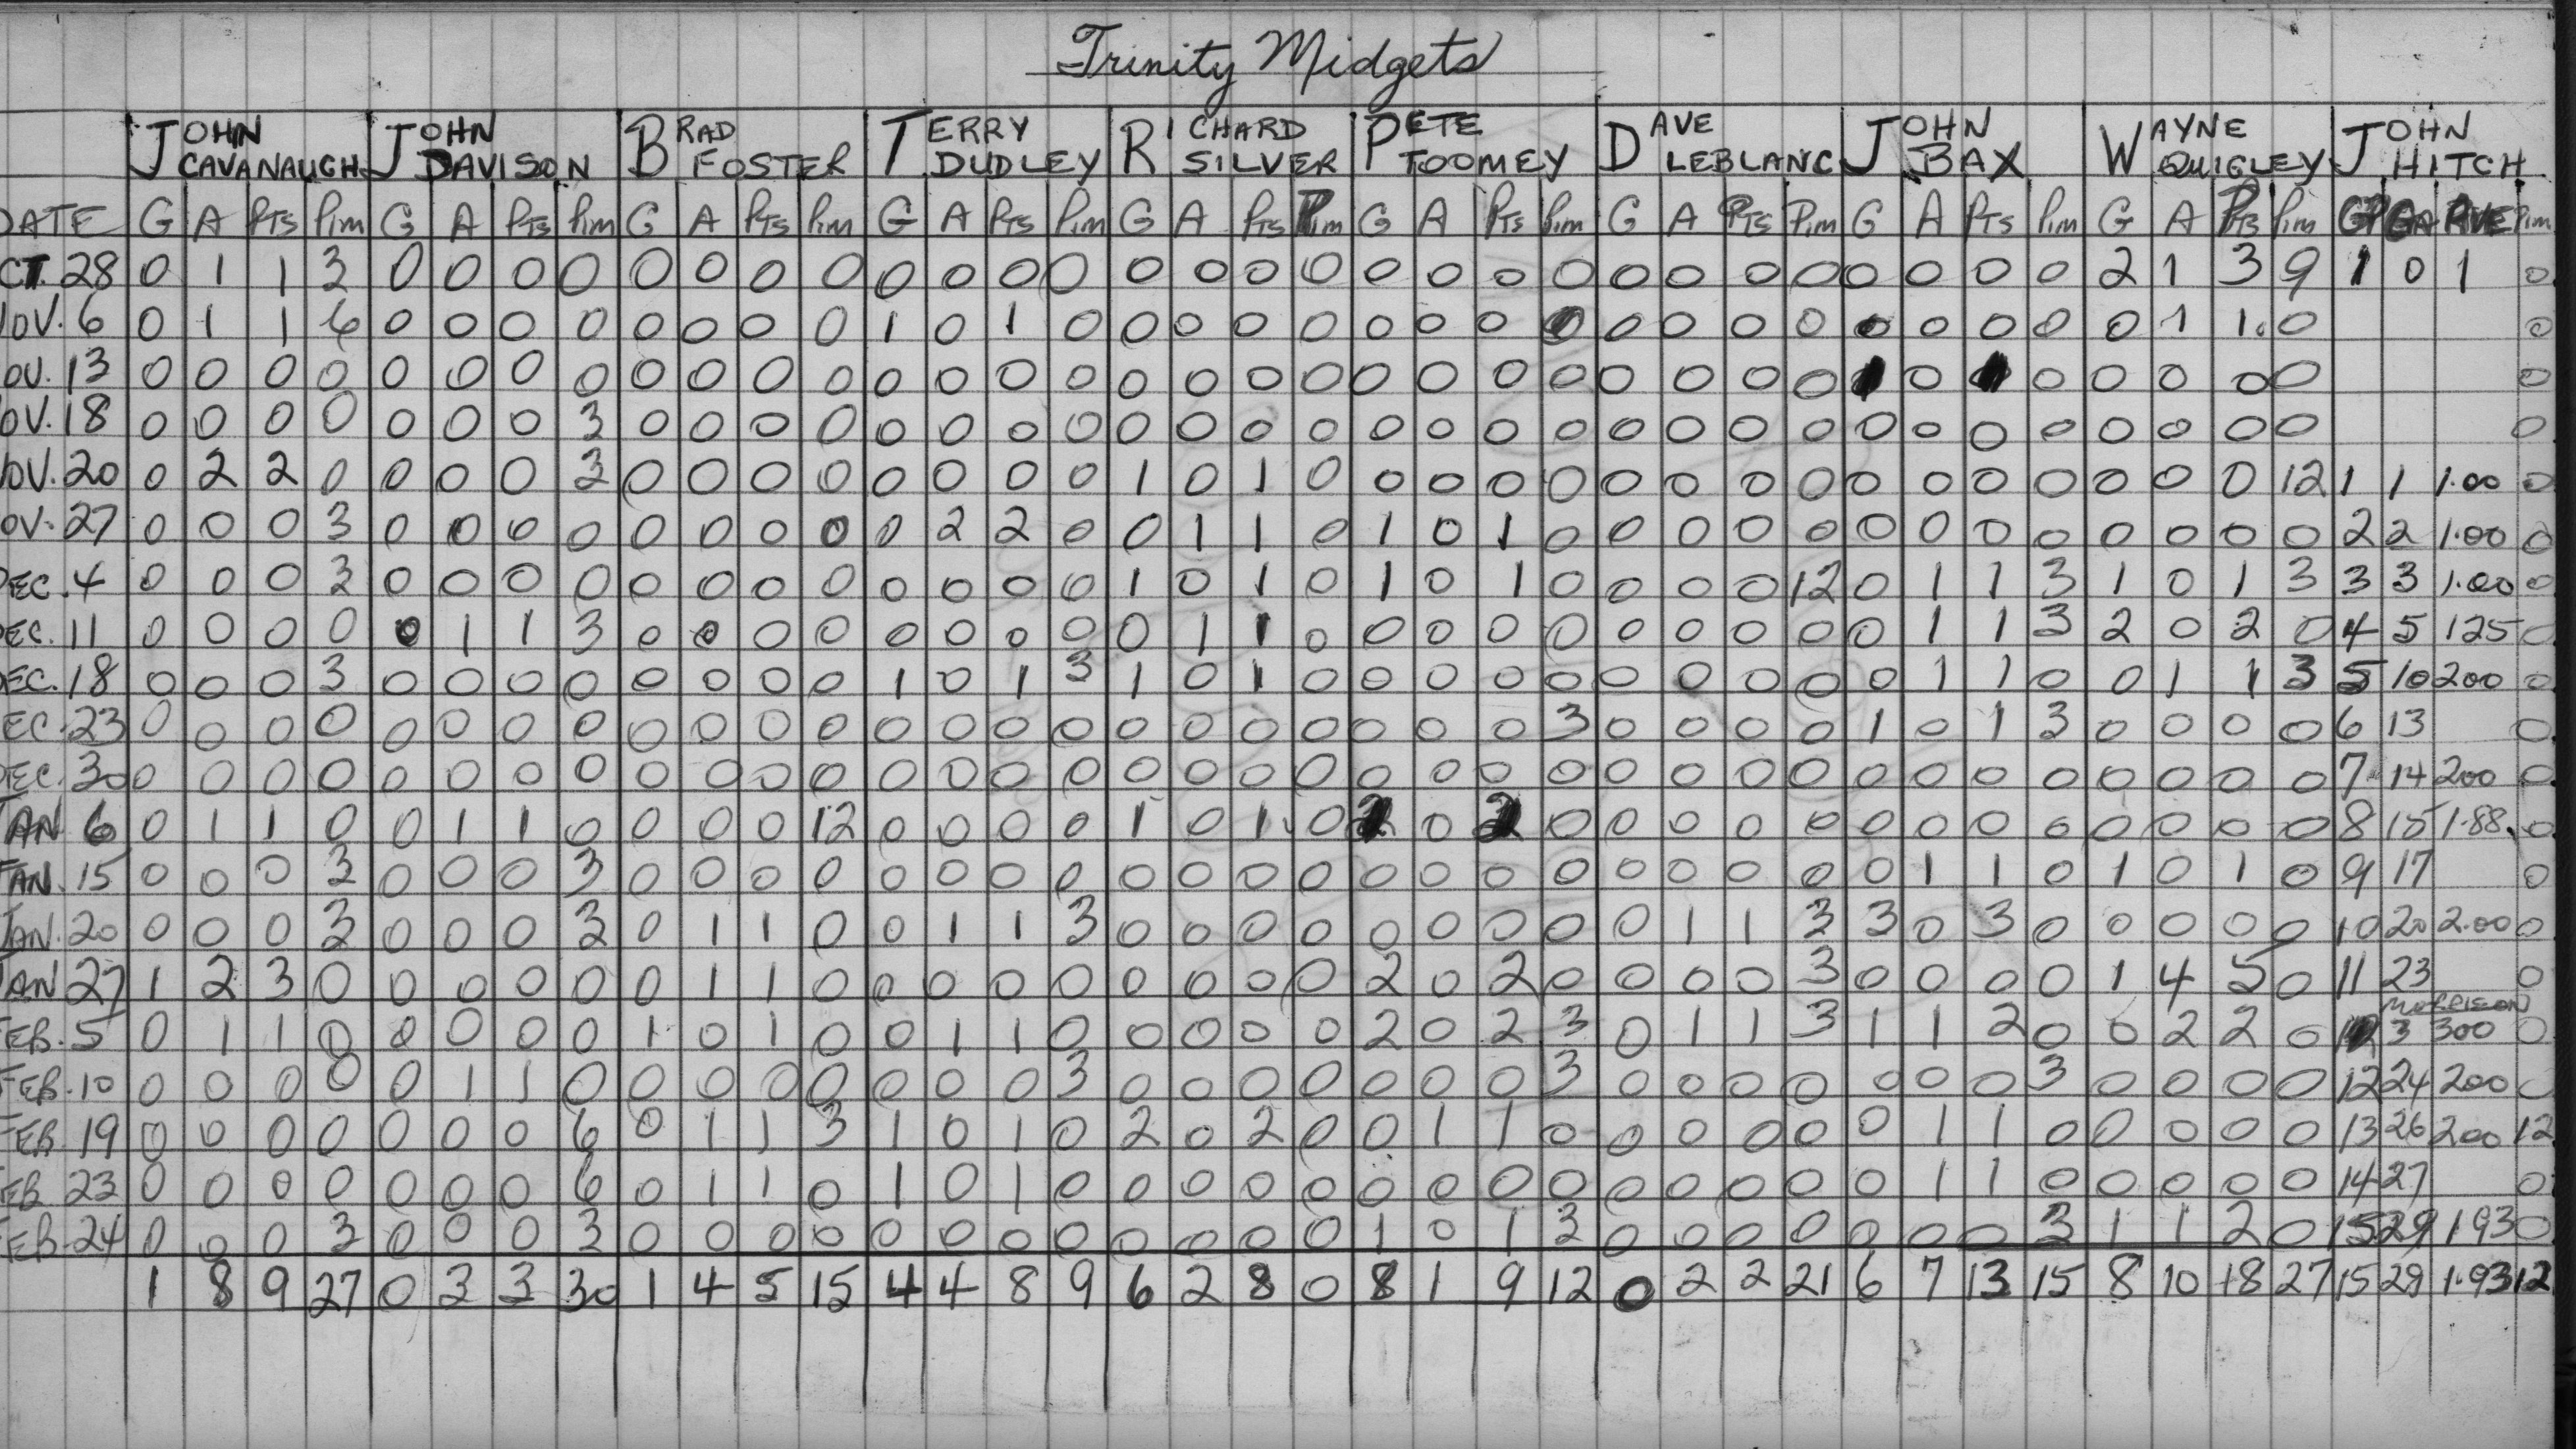 Trinity Midgets
JOHN CAVANAUGH JOHN DAVISON BRAD FOSTER TERRY DUDLEY RICHARD SILVER PETE TOOMEY DAVE LEBLANC JOHN BAX WAYNE QUIGLEY JOHN HITCH
DATE G A PTS Pim G A PTS Pim G A PTS Pim G A PTS Pim G A PTS Pim G A PTS Pim G A PTS Pim G A PTS Pim G A PTS Pim GP GA AVE Pim
CT. 28 0 1 1 3 0 0 0 0 0 0 0 0 0 0 0 0 0 0 0 0 0 0 0 0 0 0 0 0 0 0 0 0 2 1 3 9 1 0 1 0
OV. 6 0 1 1 6 0 0 0 0 0 0 0 0 1 0 1 0 0 0 0 0 0 0 0 0 0 0 0 0 0 0 0 0 0 1 1. 0 0
OV. 13 0 0 0 0 0 0 0 0 0 0 0 0 0 0 0 0 0 0 0 0 0 0 0 0 0 0 0 0 0 0 0 0 0 0 0
OV. 18 0 0 0 0 0 0 0 3 0 0 0 0 0 0 0 0 0 0 0 0 0 0 0 0 0 0 0 0 0 0 0 0 0 0 0 0 0
OV. 20 0 2 2 0 0 0 0 3 0 0 0 0 0 0 0 0 1 0 1 0 0 0 0 0 0 0 0 0 0 0 0 0 0 0 0 12 1 1 1.00 0
OV. 27 0 0 0 3 0 0 0 0 0 0 0 0 0 2 2 0 0 1 1 0 1 0 1 0 0 0 0 0 0 0 0 0 0 0 0 0 2 2 1.00 0
DEC. 4 0 0 0 3 0 0 0 0 0 0 0 0 0 0 0 0 1 0 1 0 1 0 1 0 0 0 0 12 0 1 1 3 1 0 1 3 3 3 1.00 0
DEC. 11 0 0 0 0 0 1 1 3 0 0 0 0 0 0 0 0 0 1 1 0 0 0 0 0 0 0 0 0 0 1 1 3 2 0 2 0 4 5 125 0
EC. 18 0 0 0 3 0 0 0 0 0 0 0 0 1 0 1 3 1 0 1 0 0 0 0 0 0 0 0 0 0 1 1 0 0 1 1 3 5 10 200 0
EC. 23 0 0 0 0 0 0 0 0 0 0 0 0 0 0 0 0 0 0 0 0 0 0 0 3 0 0 0 0 1 0 1 3 0 0 0 0 6 13 0
DEC. 30 0 0 0 0 0 0 0 0 0 0 0 0 0 0 0 0 0 0 0 0 0 0 0 0 0 0 0 0 0 0 0 0 0 0 0 0 7 14 200 0
JAN 6 0 1 1 0 0 1 1 0 0 0 0 12 0 0 0 0 1 0 1 0 2 0 2 0 0 0 0 0 0 0 0 0 0 0 0 0 8 15 1.88 0
JAN. 15 0 0 0 3 0 0 0 3 0 0 0 0 0 0 0 0 0 0 0 0 0 0 0 0 0 0 0 0 0 1 1 0 1 0 1 0 9 17 0
JAN. 20 0 0 0 3 0 0 0 3 0 1 1 0 0 1 1 3 0 0 0 0 0 0 0 0 0 1 1 3 3 0 3 0 0 0 0 0 10 20 2.00 0
JAN 27 1 2 3 0 0 0 0 0 0 1 1 0 0 0 0 0 0 0 0 0 2 0 2 0 0 0 0 3 0 0 0 0 1 4 5 0 11 23 0
MORRISON
FEB. 5 0 1 1 0 0 0 0 0 1 0 1 0 0 1 1 0 0 0 0 0 2 0 2 3 0 1 1 3 1 1 2 0 0 2 2 0 3 300 0
FEB. 10 0 0 0 0 0 1 1 0 0 0 0 0 0 0 0 3 0 0 0 0 0 0 0 3 0 0 0 0 0 0 0 3 0 0 0 0 12 24 200 0
FEB 19 0 0 0 0 0 0 0 6 0 1 1 3 1 0 1 0 2 0 2 0 0 1 1 0 0 0 0 0 0 1 1 0 0 0 0 0 13 26 200 12
EB 23 0 0 0 0 0 0 0 6 0 1 1 0 1 0 1 0 0 0 0 0 0 0 0 0 0 0 0 0 0 1 1 0 0 0 0 0 14 27 0
FEB. 24 0 0 0 3 0 0 0 3 0 0 0 0 0 0 0 0 0 0 0 0 1 0 1 3 0 0 0 0 0 0 0 3 1 1 2 0 15 29 193 0
1 8 9 27 0 3 3 30 1 4 5 15 4 4 8 9 6 2 8 0 8 1 9 12 0 2 2 21 6 7 13 15 8 10 18 27 15 29 1.93 12